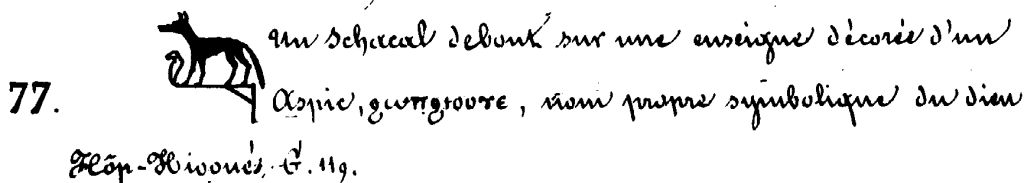 Un schacal debout sur une enseigne décorée d'un
77. Aspic, ϩⲱⲡϩⲓⲟⲩⲏⲉ, nom propre symbolique du dieu
Hôp-Hioouès, G. 119.